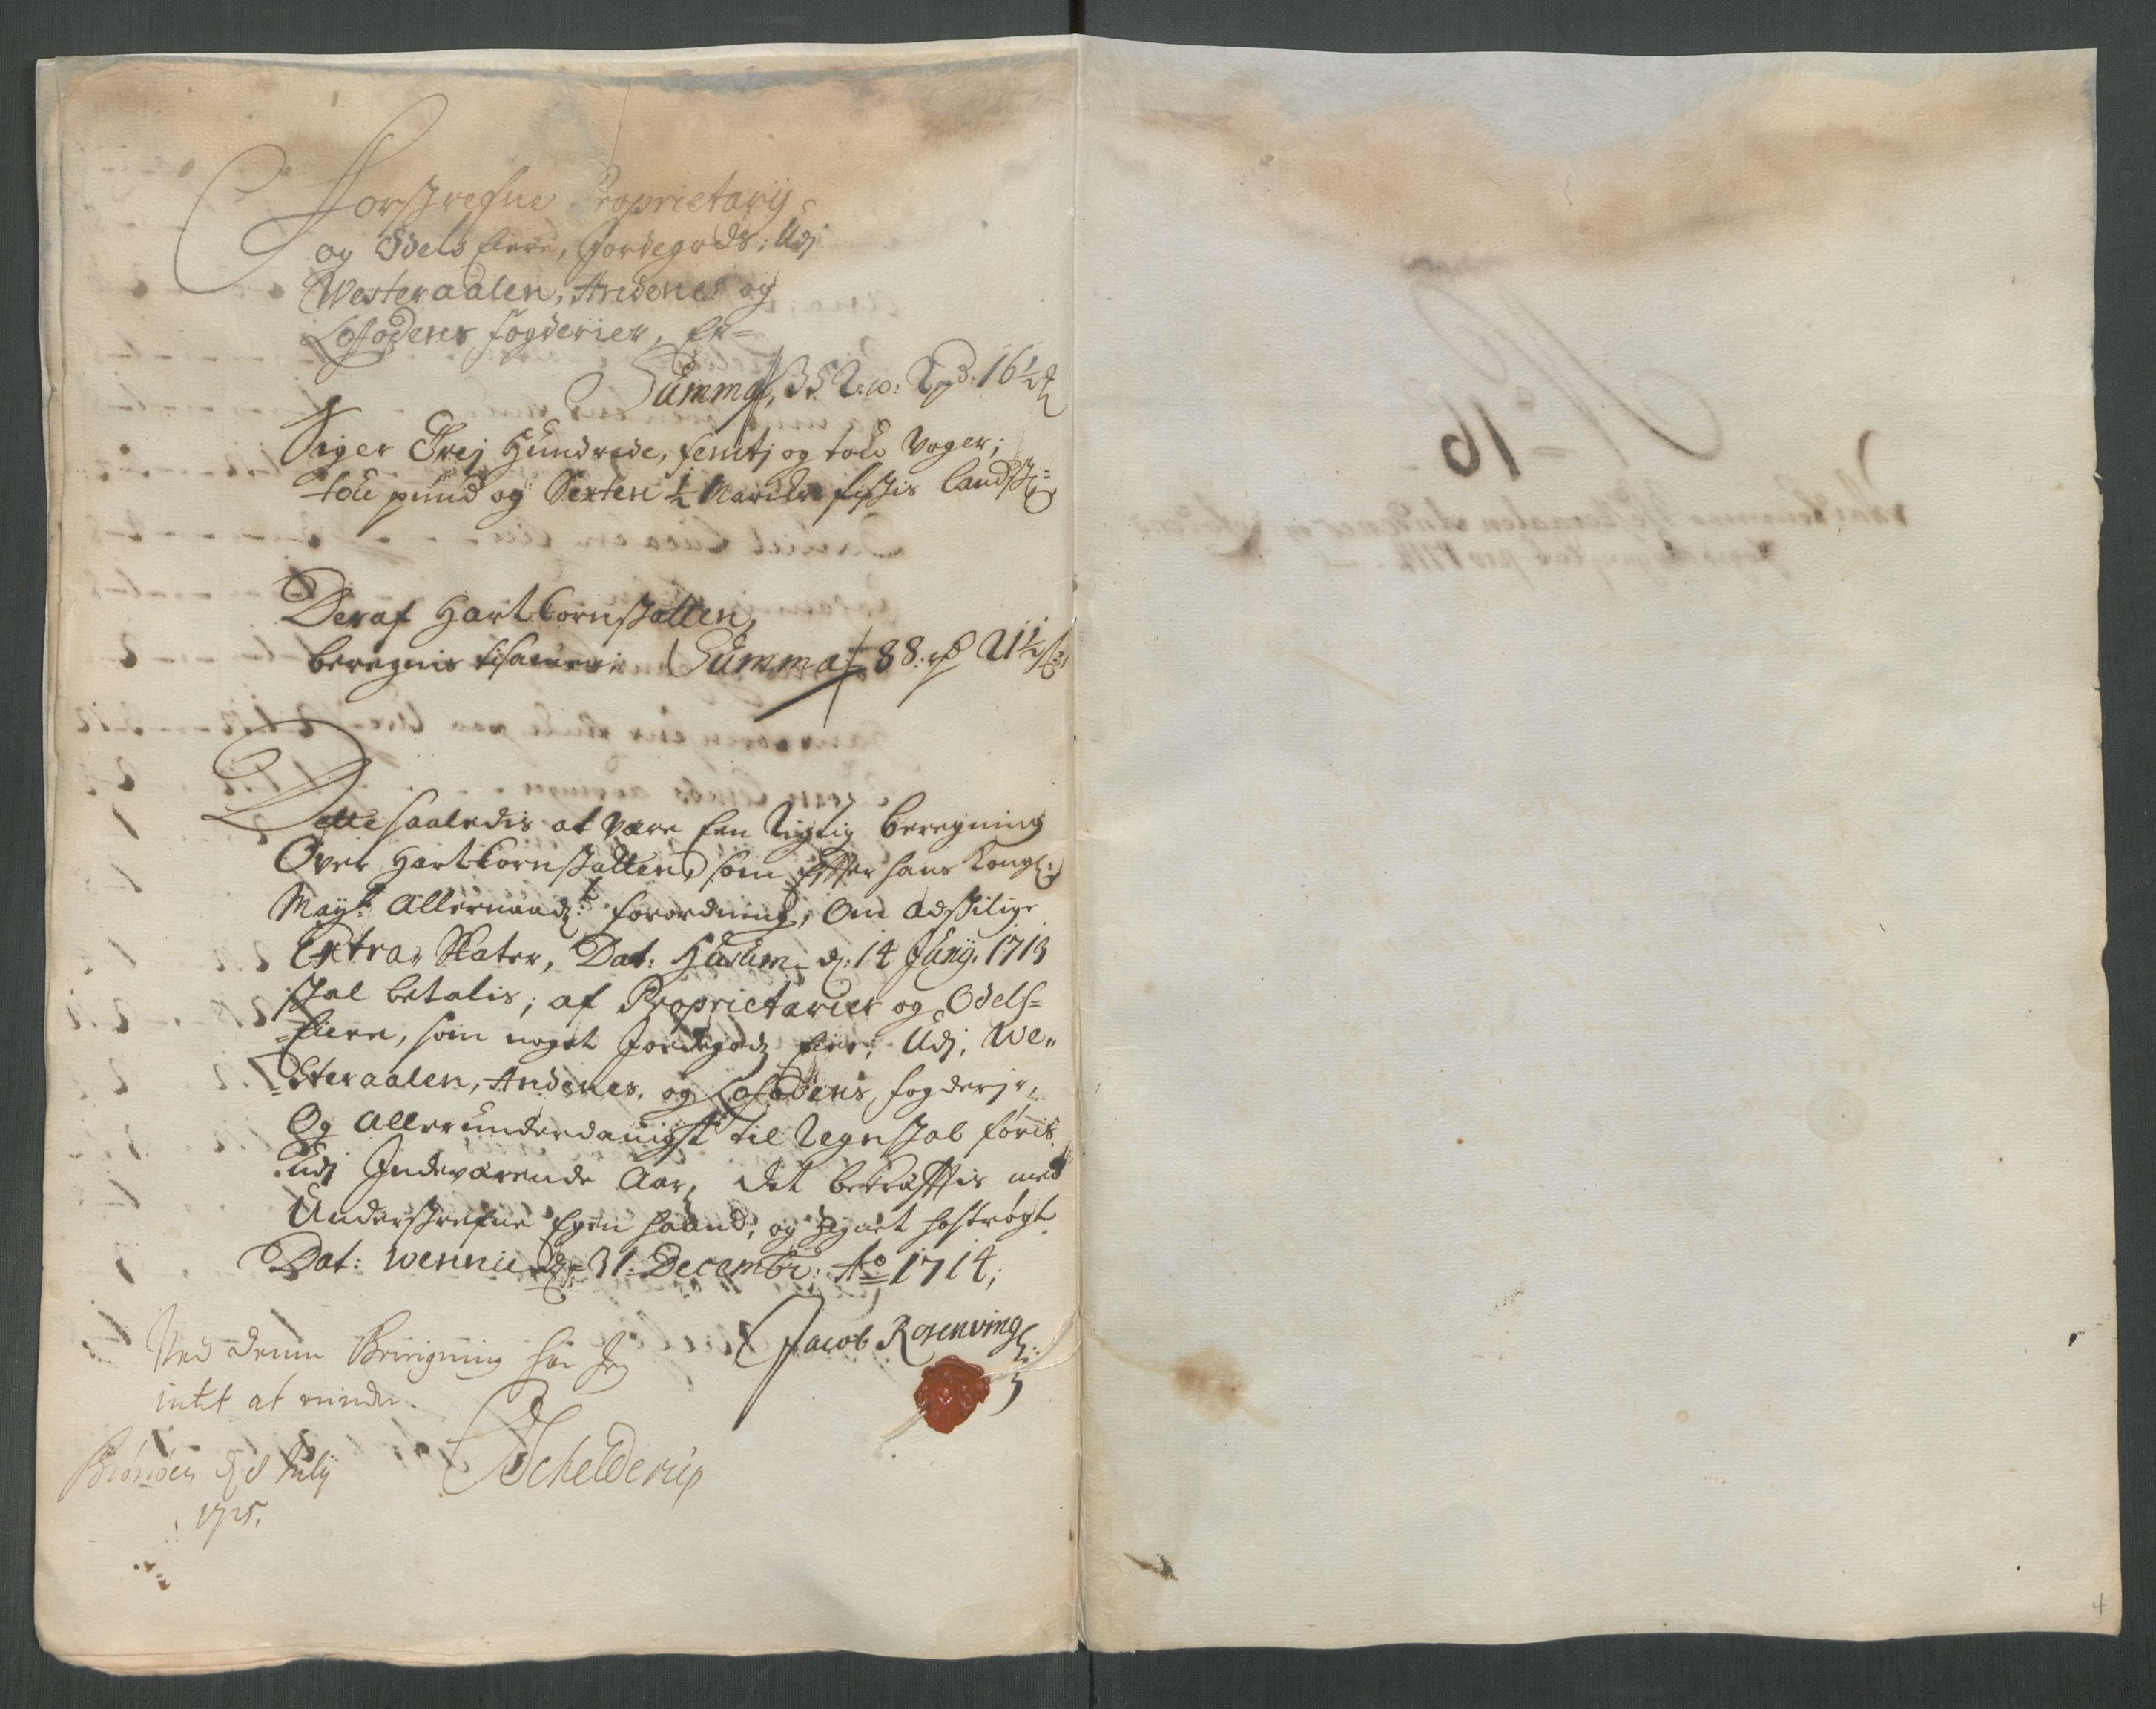 Forskrefne Proprietarij
og Odels Eiere, Jordegods, Udj
Westeraalen, Andenes og
Lofodens fogderier, Er=
Summa, 352: w: 2 pd: 16½ ℔
Siger Trej Hundrede, femtj og toe Voger;
toe pund og Sexten ½ Marck fiskis Landsk:
Deraf Hartkornskatten,
beregnis tilsamen: Summa 88: rd 21½ s:
Dette saaledis at være Een Rigtig beregning
Over Hartkornskatten, som Efter hans Kongl:
Mayts: Allernaadst: forordning, Om adskilige
Extra Skater, Dat: Husum d: 14 Junij. 1713
skal betalis; af Proprietarier og Odels=
=Eiere, som noget Jordegods Eier; Udj, We„
=steraalen, Andenes, og Lofodens, fogderjr,
Og Allerunderdanigst til Regnskab føris
udj Indeværende Aar, det bekræfftis med
Underskrefne Egen haand, og Zignet hostrøgt
Dat: Wennie d: 31. Decembr: Ao 1714;
Jacob Rosenving
Ved denne Beregning har Jeg
intet at minde.
d 8 Julij
1715.
Schelderup
No 16
4